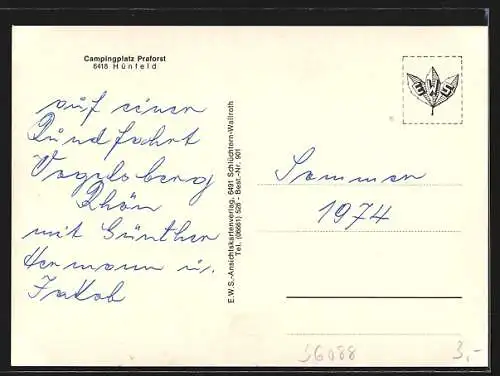 Campingplatz Praforst
6418 Hünfeld
auf einer
Rundfahrt
Vogelsberg
Rhön
mit Günther
Hermann u.
Jakob
E.W.S.-Ansichtskartenverlag, 6491 Schlüchtern-Wallroth
Tel. (06661) 526 - Best.-Nr. 901
EWS
Sommer
1974
36088
3,-